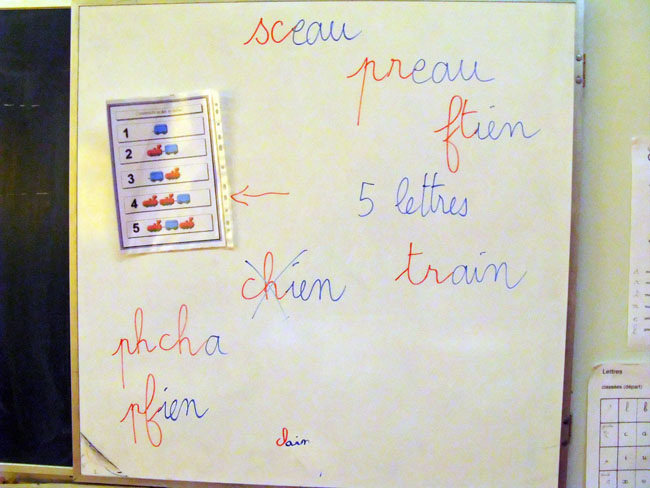 sceau
preau
ftien
1
2
3
4
5
5 lettres
chien
train
phcha
pfien
clain
Lettres